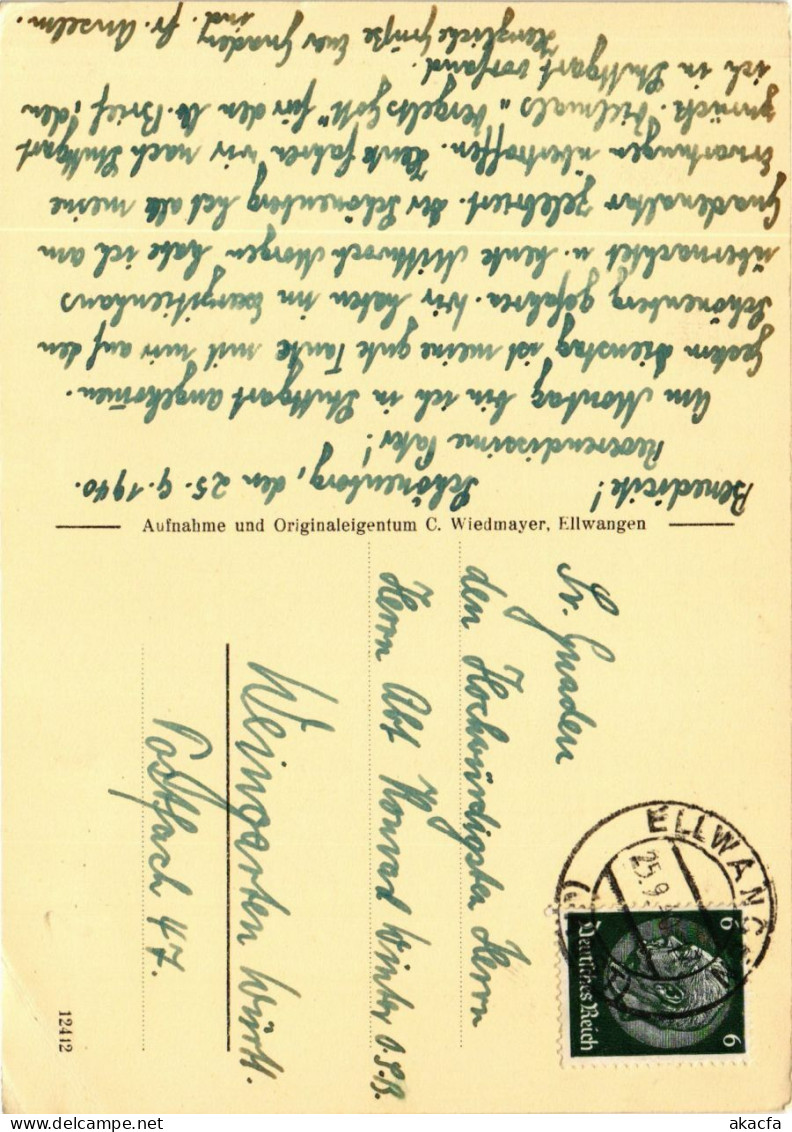 Benedicite! Schönenberg, den 25.9.1940.
Reverendissime Pater!
Am Montag bin ich in Stuttgart angekom̄en.
Gestern Dienstag ist meine gute Tante mit mir auf den
Schönenberg gefahren. Wir haben im Exerzitienhaus
übernachtet u. heute Mittwoch Morgen habe ich am
Gnadenaltar zelebriert. Der Schönenberg hat alle meine
Erwartungen übertroffen. Heute fahren wir nach Stuttgart
zurück. Vielmals "Vergelts Gott" für den lb. Brief, den
ich in Stuttgart vorfand.
Herzliche Grüße Euer Gnaden ind. fr. Anselm.
Aufnahme und Originaleigentum C. Wiedmayer, Ellwangen
Sr. Gnaden
den Hochwürdigsten Herrn
Herrn Abt Konrad Winter O.S.B.
Weingarten Württ.
Postfach 47.
12412
ELLWANG
25.9
6 6
Deutsches Reich
akacfa